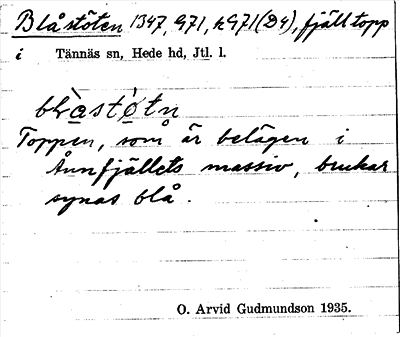 Blåstöten 1347, G71, RG71(D4), fjälltopp
i Tännäs sn, Hede hd, Jtl. l.
Toppen, som är belägen i
Ånnfjällets massiv, brukar
synas blå.
O. Arvid Gudmundson 1935.